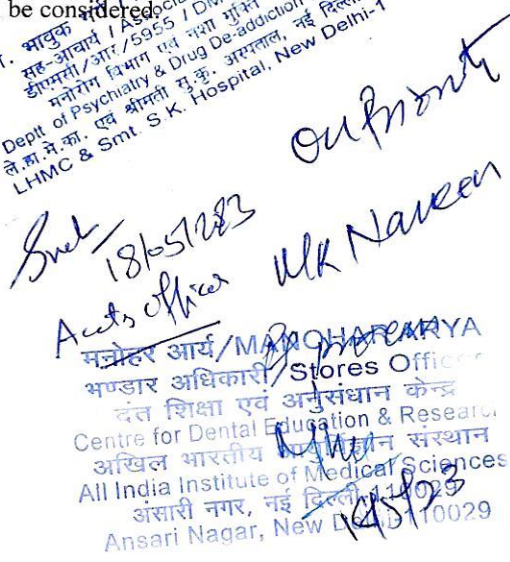 be considered.
. भावुक
सह-आचार्य / Associ
डीएमसी/आर/5955 / D
मनोरोग विभाग एवं नशा मुक्ति
Deptt of Psychiatry & Drug De-addiction
ले.हा.मे.का. एवं श्रीमती सु.कृ. अस्पताल, नई दिल्
LHMC & Smt. S.K. Hospital, New Delhi-1
On Priority
18/05/2023
Accts Officer
Mr Naveen
मनोहर आर्य/MANOHAR ARYA
भण्डार अधिकारी/Stores Officer
दंत शिक्षा एवं अनुसंधान केन्द्र
Centre for Dental Education & Research
अखिल भारतीय आयुर्विज्ञान संस्थान
All India Institute of Medical Sciences
अंसारी नगर, नई दिल्ली-110029
Ansari Nagar, New Delhi-110029